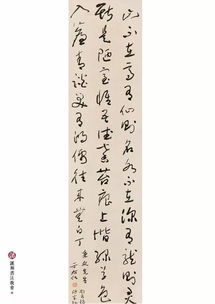 山不在高有仙则名水不在深有龙则灵
斯是陋室惟吾德馨苔痕上阶绿草色
入帘青谈笑有鸿儒往来无白丁
于右任